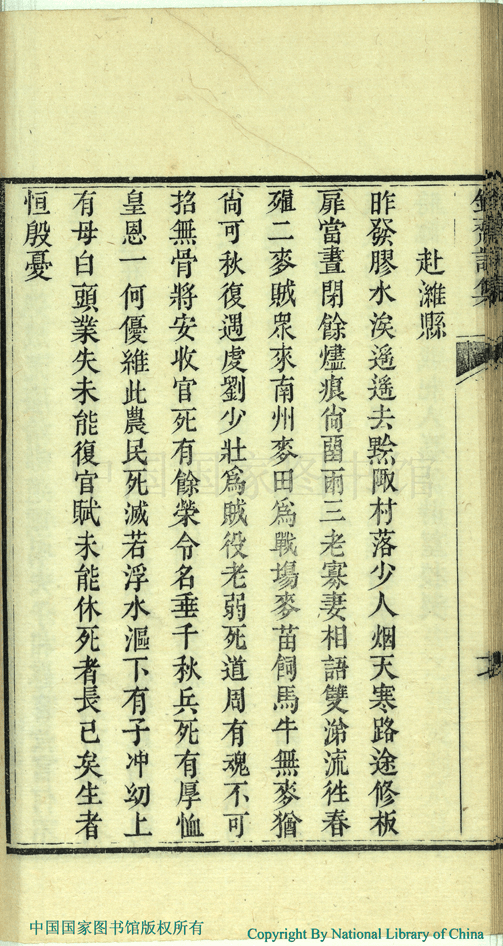 齋詩集
赴濰縣
昨發膠水涘遙遙去黔陬村落少人烟天寒路途修板
扉當晝閉餘燼痕尚畱兩三老寡妻相語雙涕流徃春
殲二麥賊眾來南州麥田爲戰場麥苗飼馬牛無麥猶
尚可秋復遇虔劉少壯爲賊役老弱死道周有魂不可
招無骨將安收官死有餘榮令名垂千秋兵死有厚恤
皇恩一何優維此農民死滅若浮水漚下有子冲幼上
有母白頭業失未能復官賦未能休死者長已矣生者
恒殷憂
中国国家图书馆
中国国家图书馆版权所有
Copyright By National Library of China